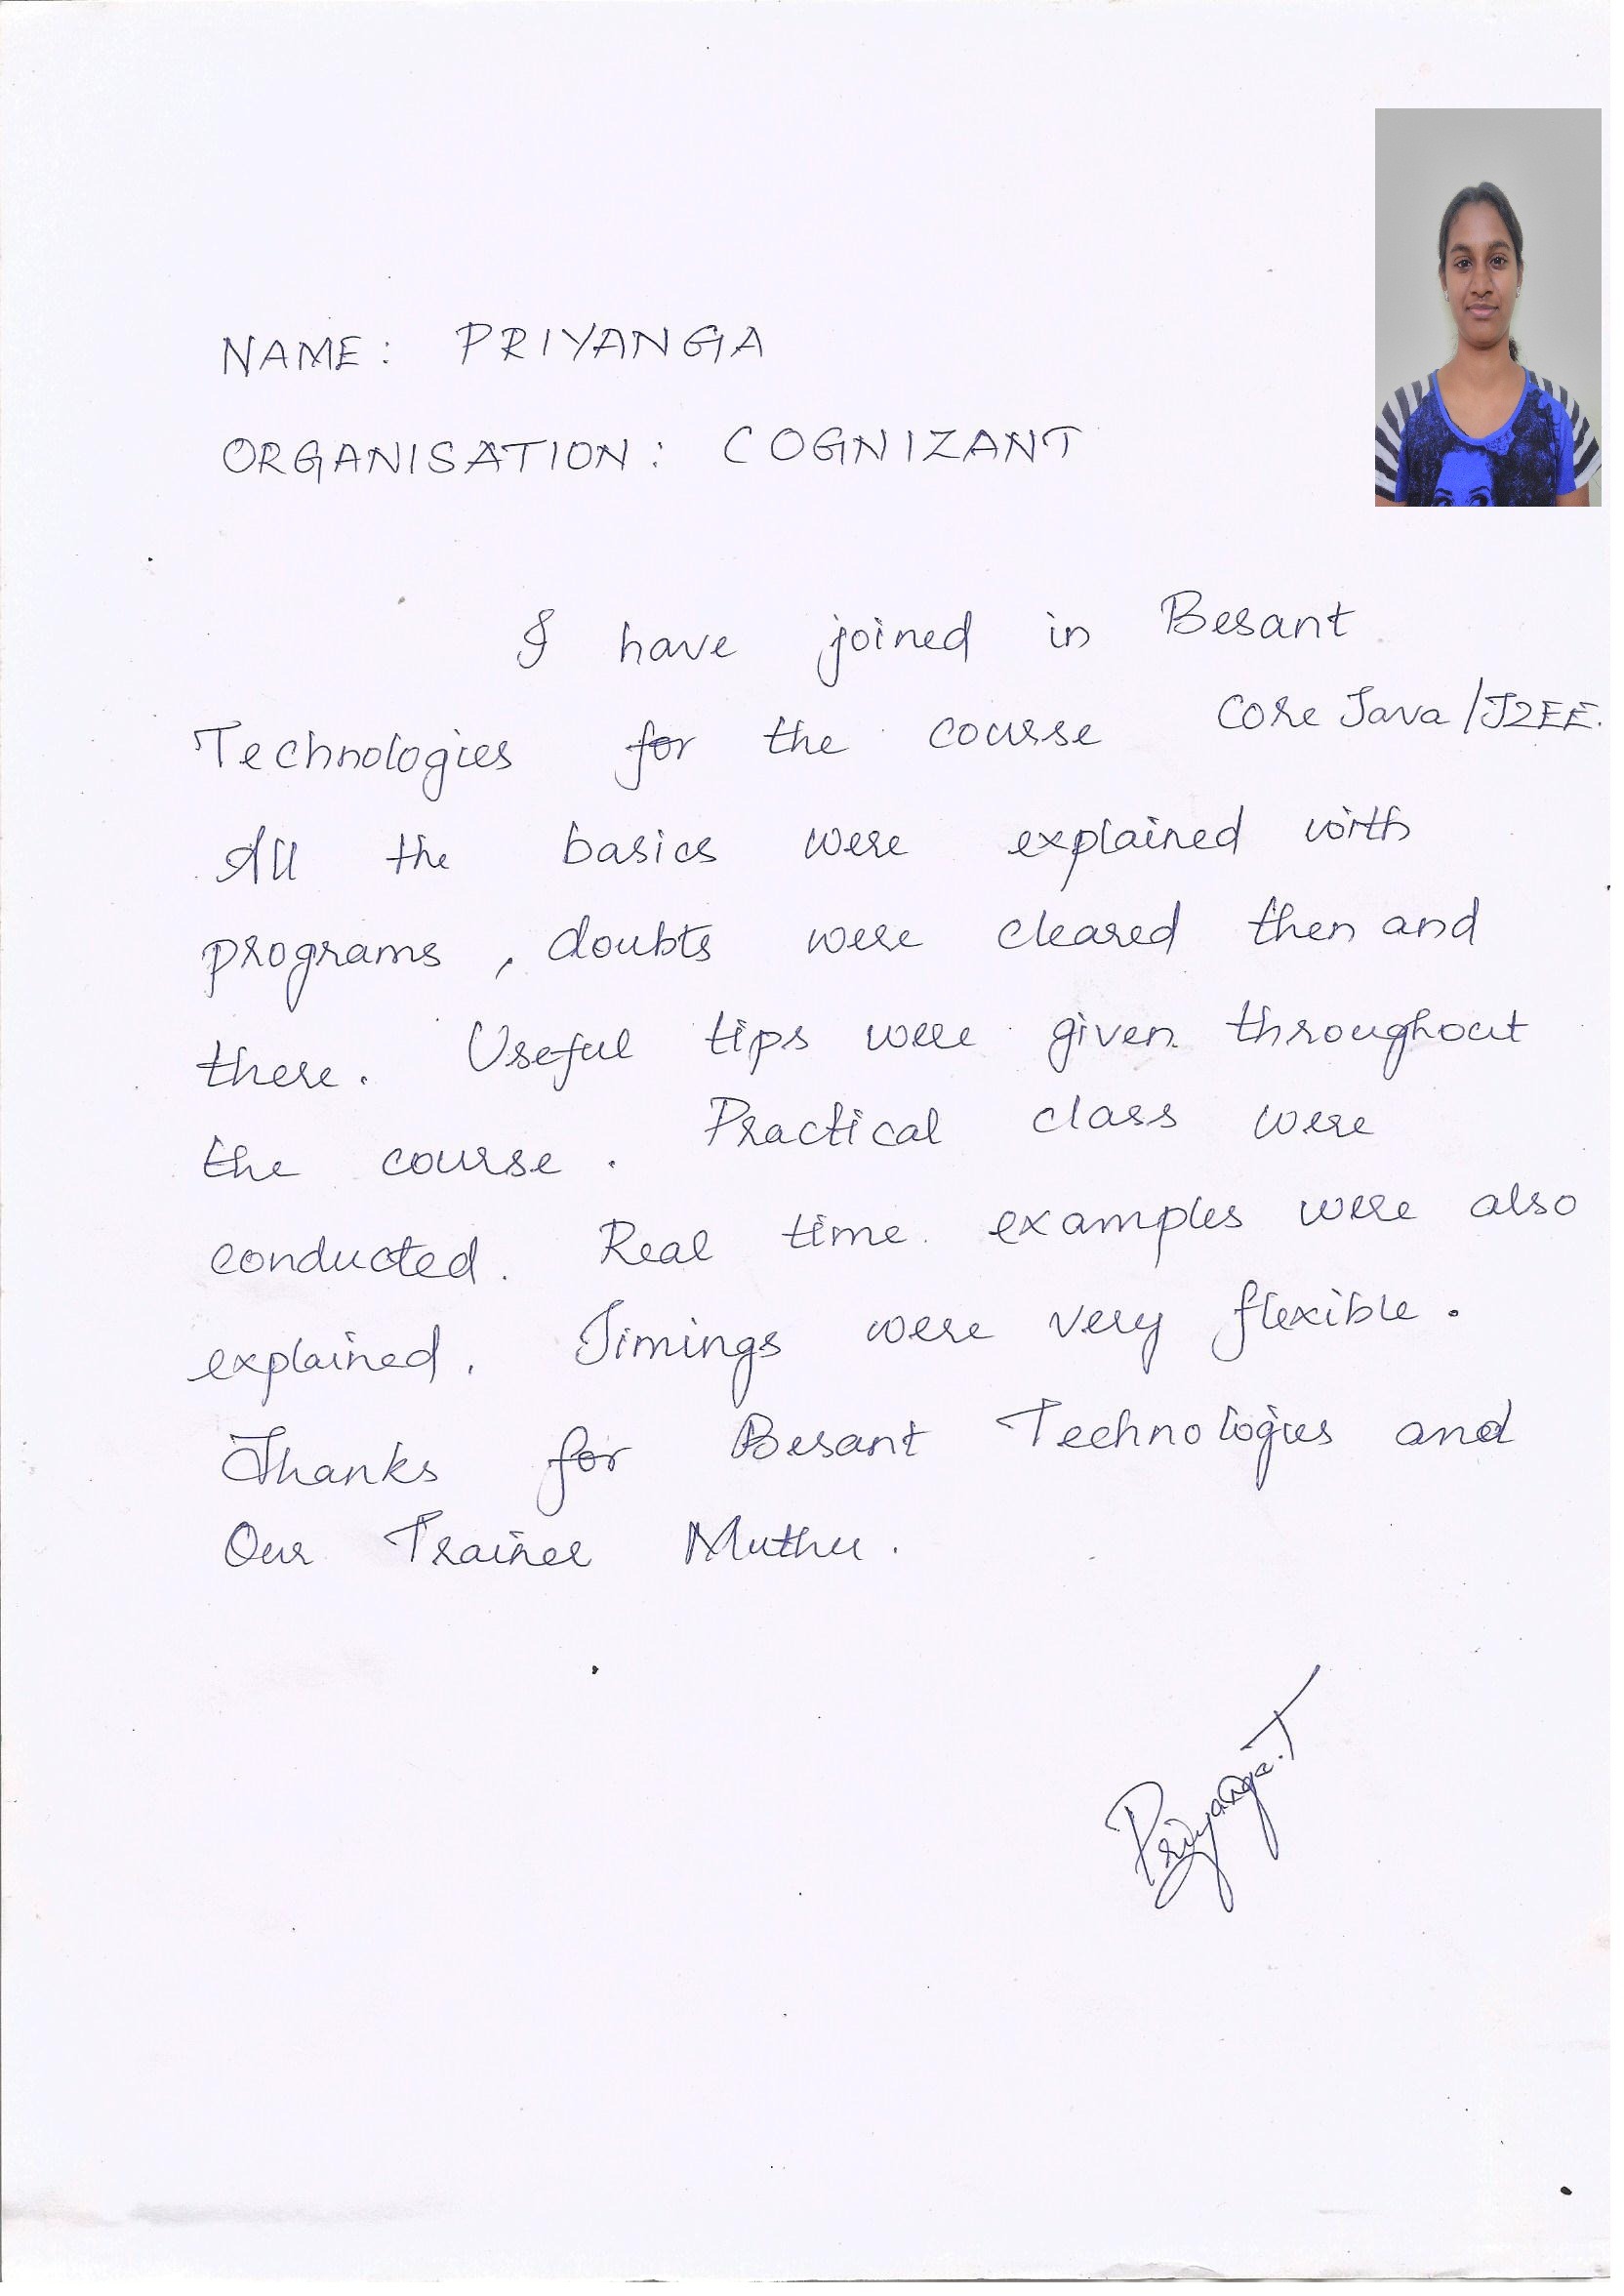 NAME: PRIYANGA
ORGANISATION: COGNIZANT
I have joined in Besant
Technologies for the course Core Java/J2EE.
All the basics were explained with
programs, doubts were cleared then and
there. Useful tips were given throughout
the course. Practical class were
conducted. Real time examples were also
explained. Timings were very flexible.
Thanks for Besant Technologies and
Our Trainer Muthu.
Priyanga.T